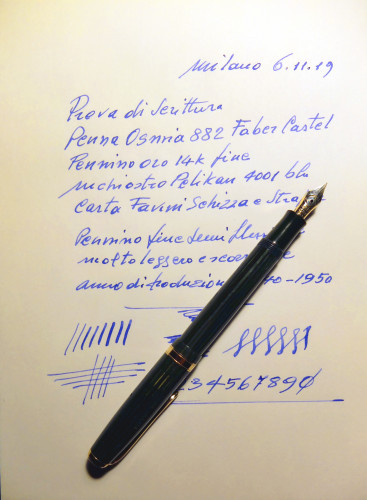 Milano 6.11.19
Prova di Scrittura
Penna Osmia 882 Faber Castel
Pennino oro 14k fine
inchiostro Pelikan 4001 blu
Carta Favini Schizza e Stra
Pennino fine semi fless
molto leggero e scor
anno di produzion -1950
34567890